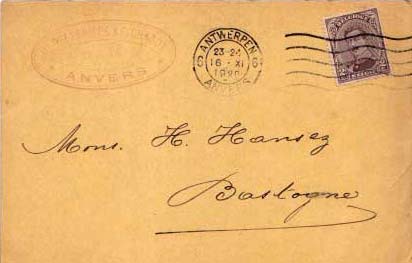 ANVERS
6 ANTWERPEN 6
23-24
16 · XI
ANVERS
BELGIQUE
Mons. H. Hansez
Bastogne